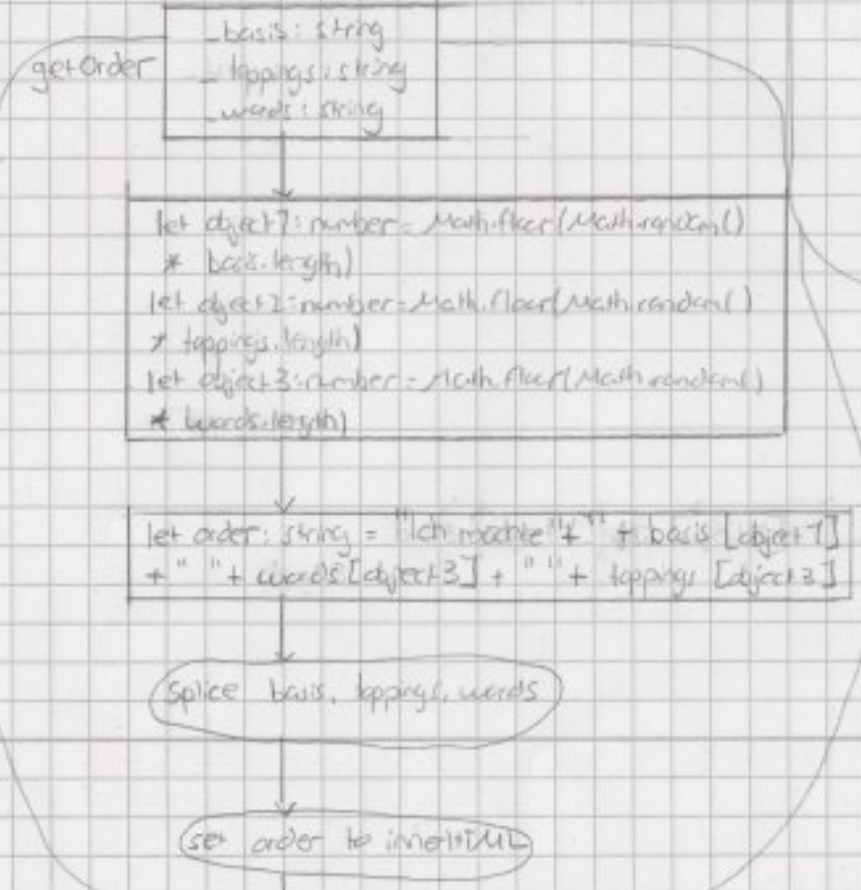 getOrder
_basis: string
_toppings: string
_words: string
let object1: number = Math.floor(Math.random()
* basis.length)
let object2: number = Math.floor(Math.random()
* toppings.length)
let object3: number = Math.floor(Math.random()
* words.length)
let order: string = "Ich möchte" + " " + basis [object1]
+ " " + words [object3] + " " + toppings [object2]
splice basis, toppings, words
set order to innerHTML